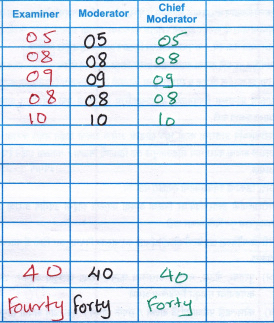 Examiner Moderator Chief Moderator
05 05 05
08 08 08
09 09 09
08 08 08
10 10 10
40 40 40
Fourty forty Forty